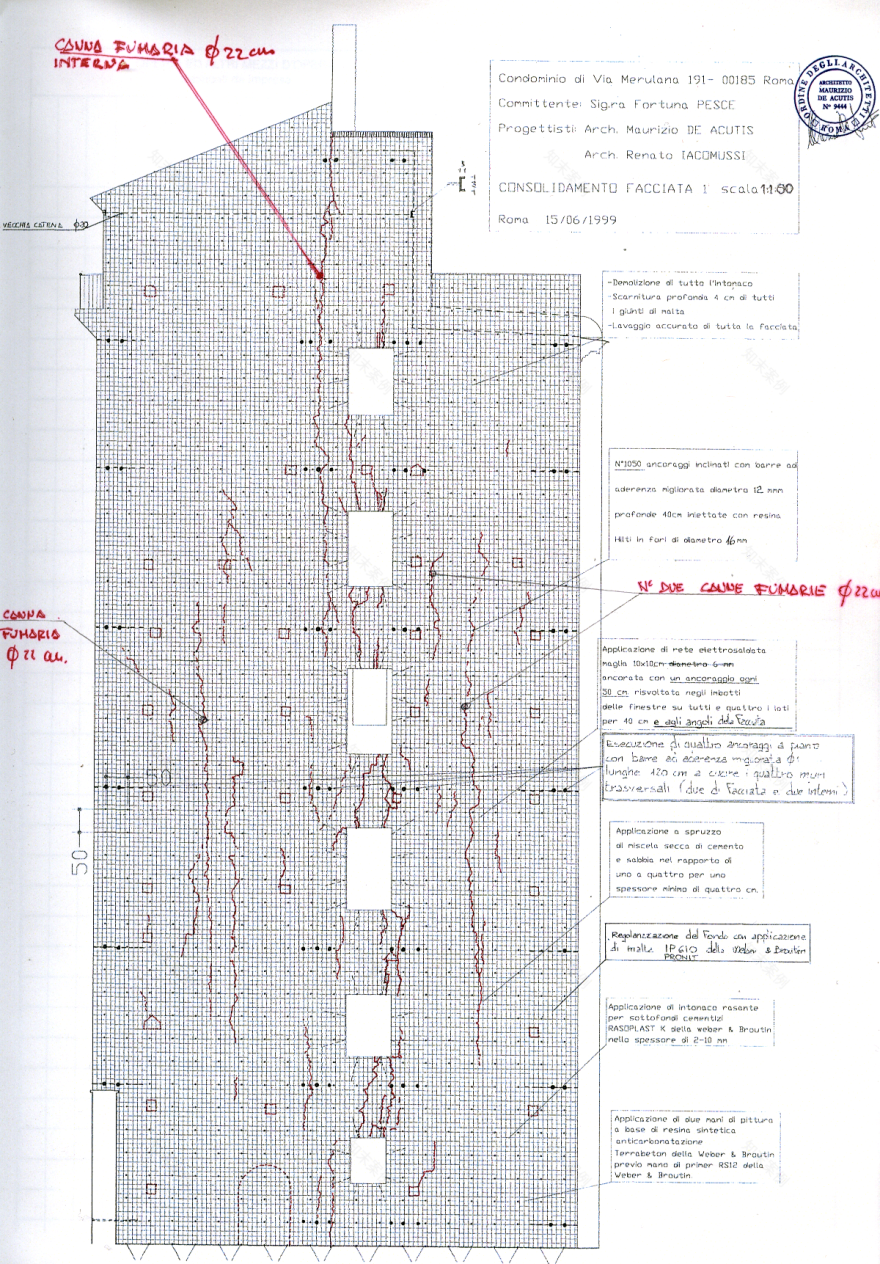 CANNA FUMARIA Ø 22 cm
INTERNA
Condominio di Via Merulana 191- 00185 Roma
Committente: Sig.ra Fortuna PESCE
Progettisti: Arch. Maurizio DE ACUTIS
Arch. Renato IACOMUSSI
CONSOLIDAMENTO FACCIATA 1 scala 1:50
Roma 15/06/1999
ORDINE DEGLI ARCHITETTI
ROMA
ARCHITETTO
MAURIZIO
DE ACUTIS
N° 9444
VECCHIA CATENA Ø30
-Demolizione di tutto l'intonaco
-Scarnitura profonda 4 cm di tutti
i giunti di malta
-Lavaggio accurato di tutta la facciata
N°1050 ancoraggi inclinati con barre ad
aderenza migliorata diametro 12 mm
profonde 40cm iniettate con resina
Hilti in fori di diametro 16mm
N° DUE CANNE FUMARIE Ø 22 cm
CANNA
FUMARIA
Ø 22 cm.
Applicazione di rete elettrosaldata
maglia 10x10cm diametro 6 mm
ancorata con un ancoraggio ogni
50 cm risvoltata negli imbotti
delle finestre su tutti e quattro i lati
per 40 cm e agli angoli della Facciata
Esecuzione di quattro ancoraggi a piano
con barre ad aderenza migliorata Ø
lunghe 120 cm a cucire i quattro muri
trasversali (due di Facciata e due interni)
50
50
Applicazione a spruzzo
di miscela secca di cemento
e sabbia nel rapporto di
uno a quattro per uno
spessore minimo di quattro cm.
Regolarizzazione del Fondo con applicazione
di malta IP610 della Weber & Broutin
PRONIT
Applicazione di intonaco rasante
per sottofondi cementizi
RASOPLAST K della Weber & Broutin
nello spessore di 2-10 mm
Applicazione di due mani di pittura
a base di resina sintetica
anticarbonatazione
Terrabeton della Weber & Broutin
previa mano di primer RS12 della
Weber & Broutin